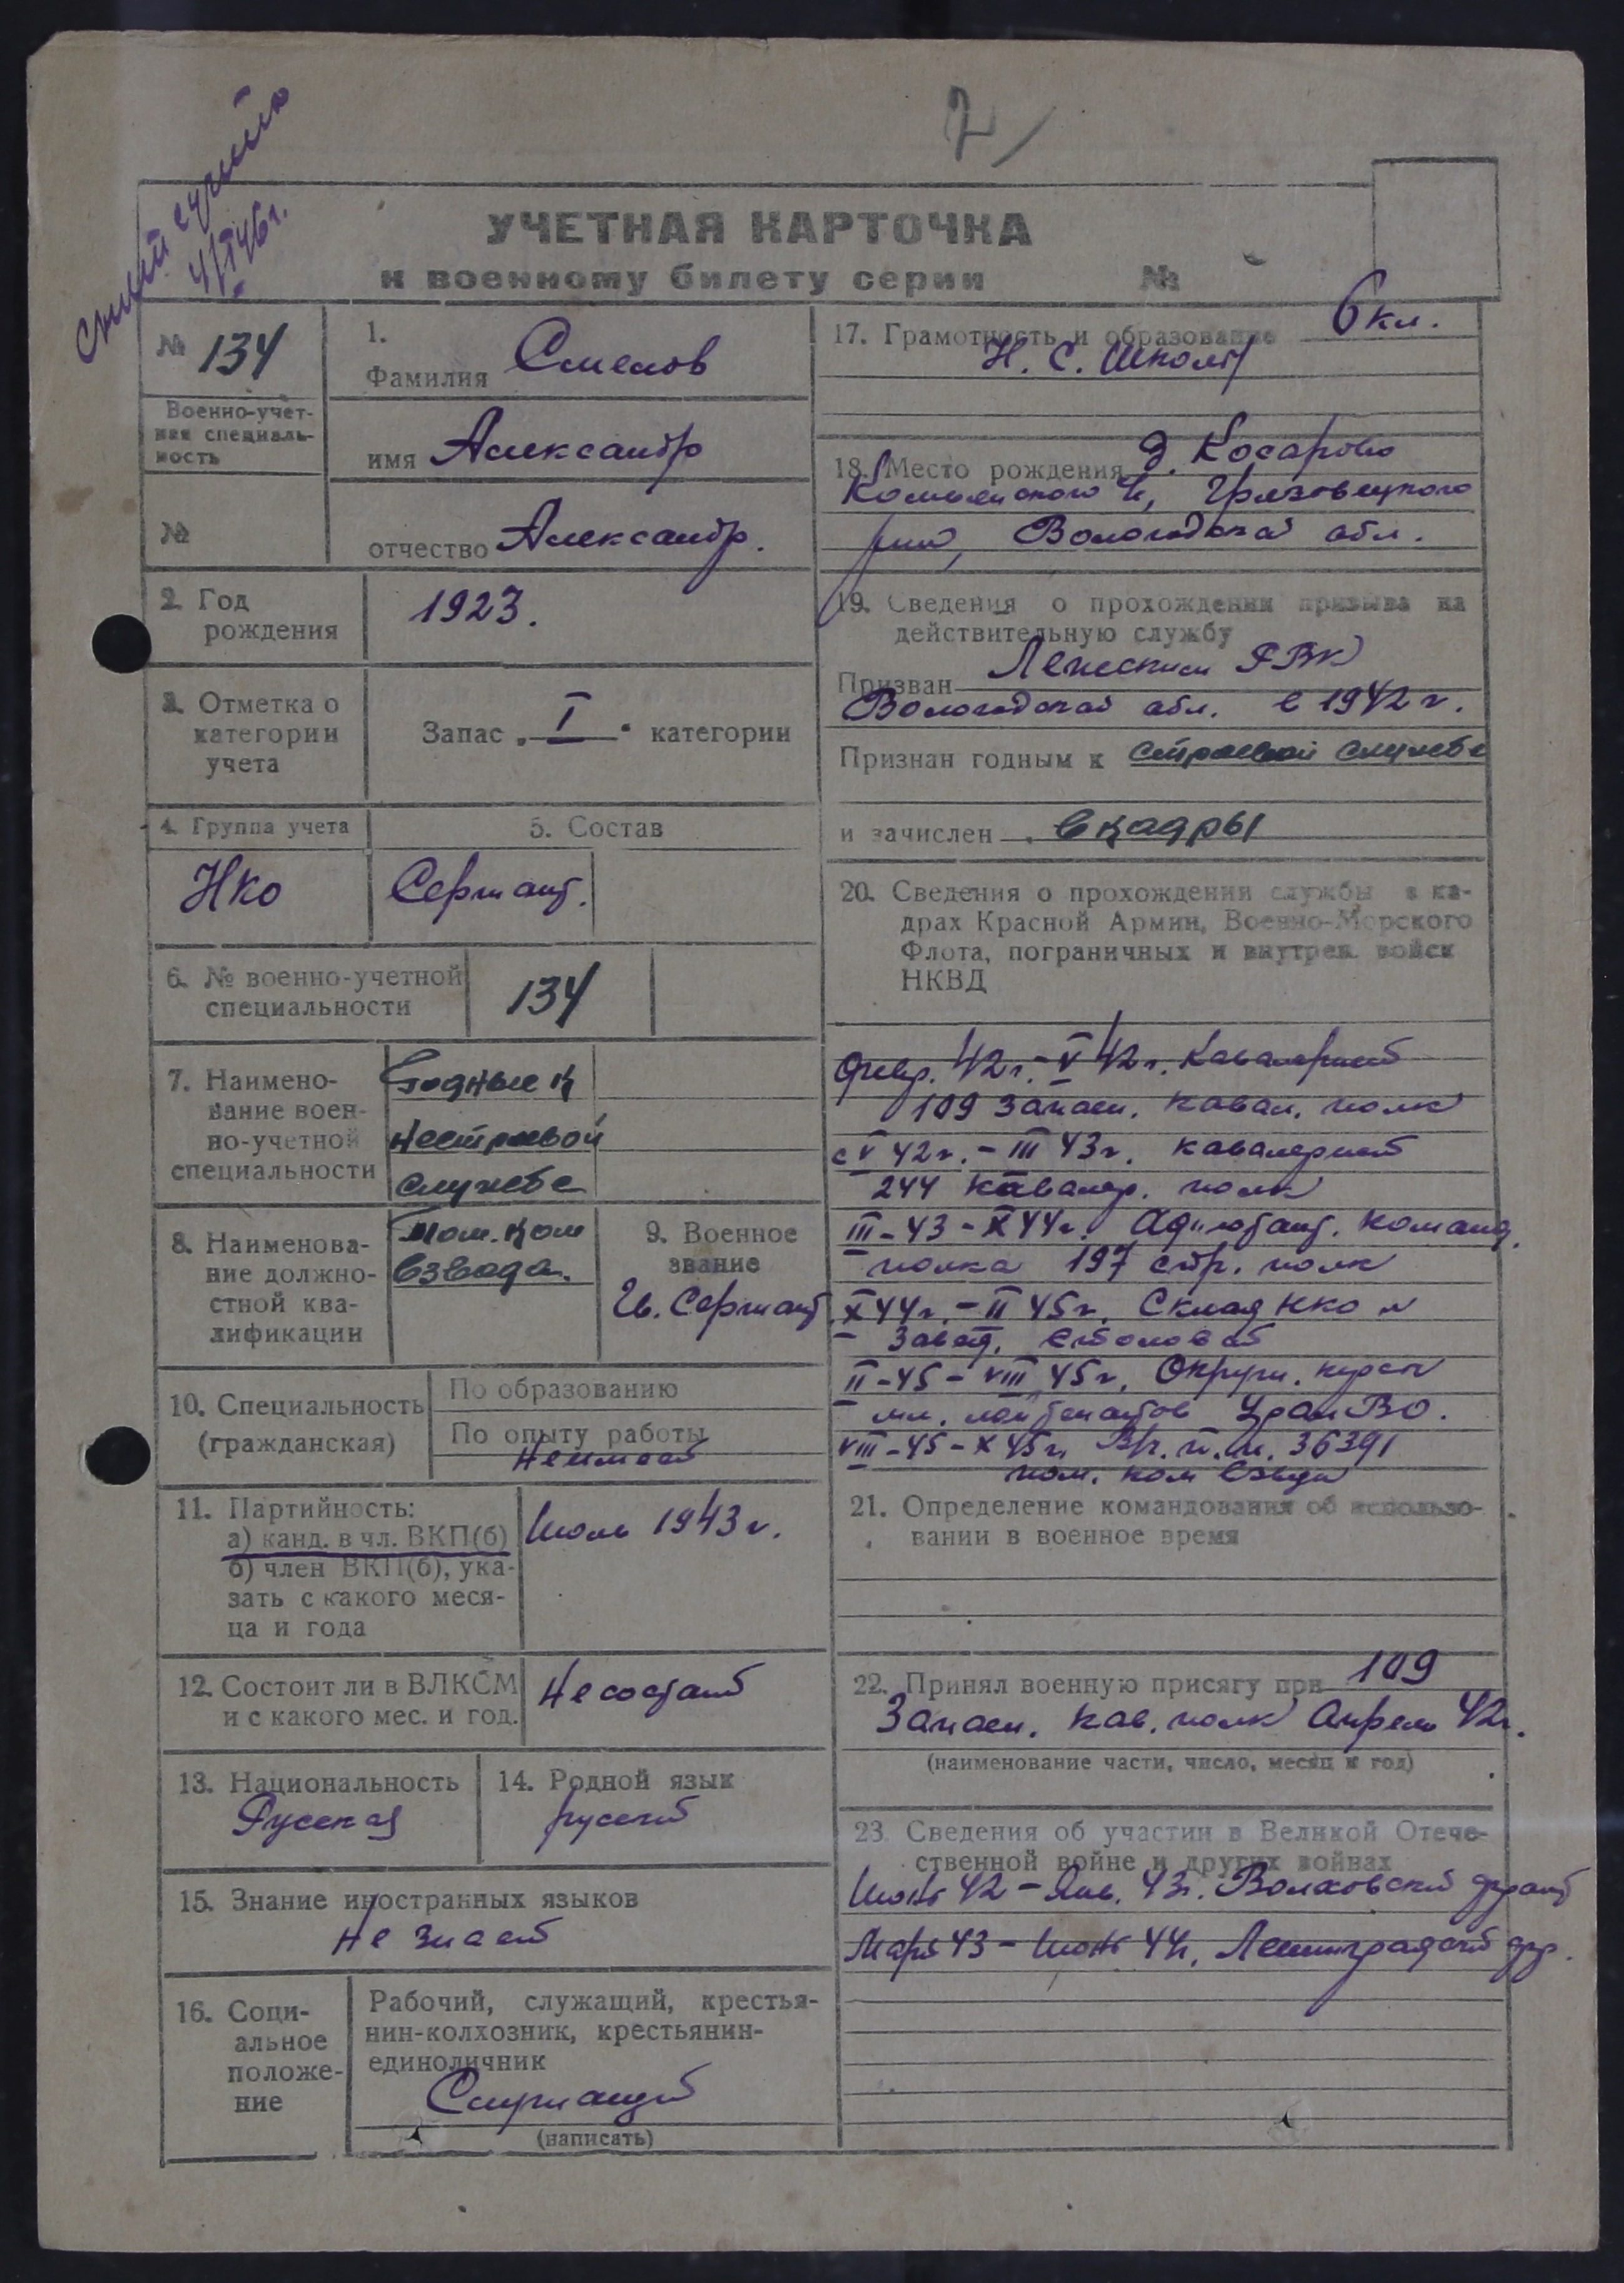 2
Снят с учёта
4/I 46 г.
УЧЕТНАЯ КАРТОЧКА
к военному билету серии №
№ 134
Военно-учет-
ная специаль-
ность
№
1.
Фамилия Смелов
имя Александр
отчество Александр.
2. Год
рождения
1923.
3. Отметка о
категории
учета
Запас „I“ категории
4. Группа учета
НКО
5. Состав
Сержант.
6. № военно-учетной
специальности
134
7. Наимено-
вание воен-
но-учетной
специальности
Годные к
нестроевой
службе
8. Наименова-
ние должно-
стной ква-
лификации
Пом. ком
взвода.
9. Военное
звание
Гв. Сержант
10. Специальность
(гражданская)
По образованию
По опыту работы
Не имеет
11. Партийность:
а) канд. в чл. ВКП(б)
б) член ВКП(б), ука-
зать с какого меся-
ца и года
Июль 1943 г.
12. Состоит ли в ВЛКСМ
и с какого мес. и год.
Не состоит
13. Национальность
Русская
14. Родной язык
русский
15. Знание иностранных языков
не знает
16. Соци-
альное
положе-
ние
Рабочий, служащий, крестья-
нин-колхозник, крестьянин-
единоличник
Служащий
(написать)
17. Грамотность и образование 6 кл.
Н. С. Школы
18. Место рождения д. Косарово
с, Грязовецкого
р-на, Вологодской обл.
19. Сведения о прохождении призыва на
действительную службу
Призван РВК
Вологодской обл. в 1942 г.
Признан годным к строевой службе
и зачислен в кадры
20. Сведения о прохождении службы в ка-
драх Красной Армии, Военно-Морского
Флота, пограничных и внутрен. войск
НКВД
Февр. 42 г. – V 42 г. Кавалерист
109 Запасн. кавал. полк
с V 42 г. – III 43 г. кавалерист
244 кавалер. полк
III-43 – X 44 г. Адъютант. команд.
полка 197 стр. полк
X 44 г. – II 45 г. Склад НКО
Завед. столовой
II-45 – VIII 45 г. Окружн. курсы
мл. лейтенантов УралВО.
VIII-45 – X 45 г. В/ч. п.п. 36391
пом. ком взвода
21. Определение командования об использо-
вании в военное время
22. Принял военную присягу при 109
Запасн. кав. полк Апрель 42 г.
(наименование части, число, месяц и год)
23. Сведения об участии в Великой Отече-
ственной войне и других войнах
Июнь 42 – Янв. 43 г. Волховский фронт
Март 43 – Июнь 44 г. Ленинградский фр.